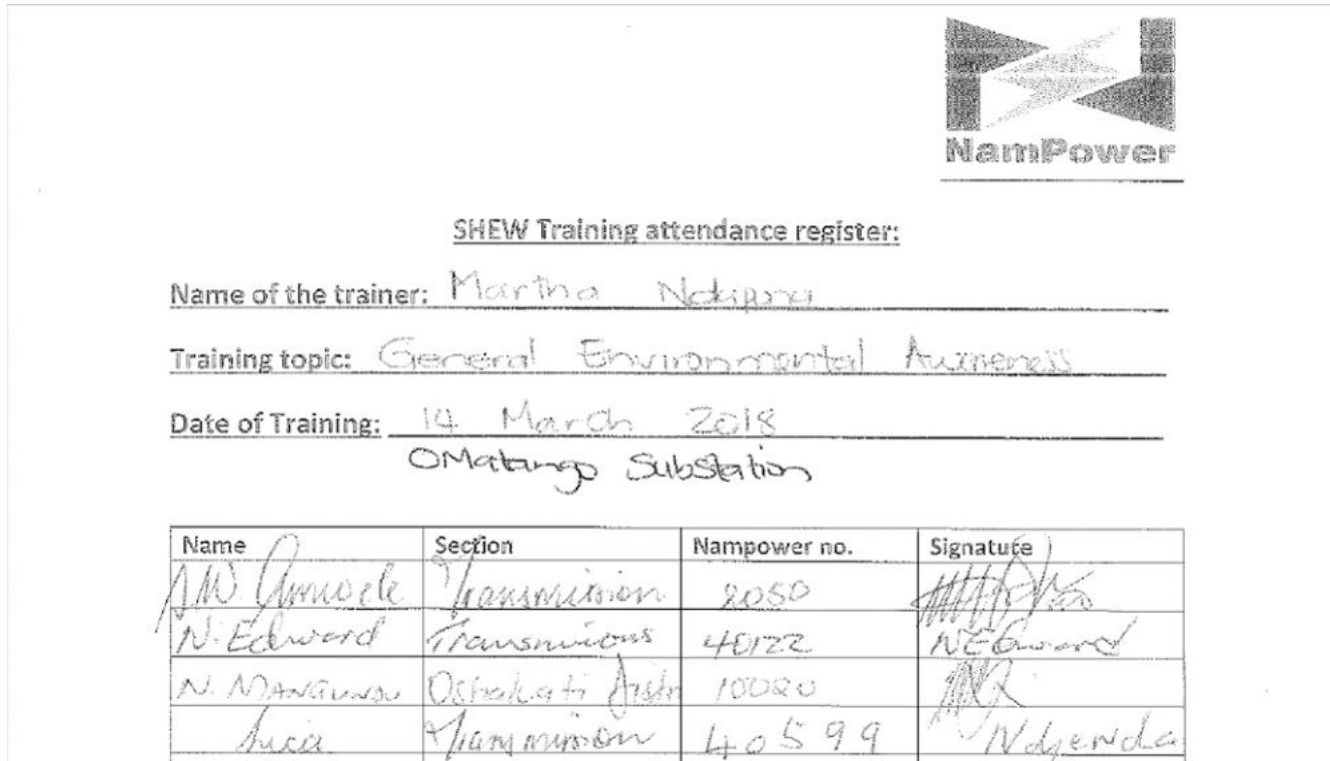 NamPower
SHEW Training attendance register:
Name of the trainer: Martha
Training topic: General Environmental Awareness
Date of Training: 14 March 2018
OMatango Substation
Name Section Nampower no. Signature
J.W. Transmission 2050
N. Edward 40122 NEdward
N. Oshakati 10020
40599 Ndjenda